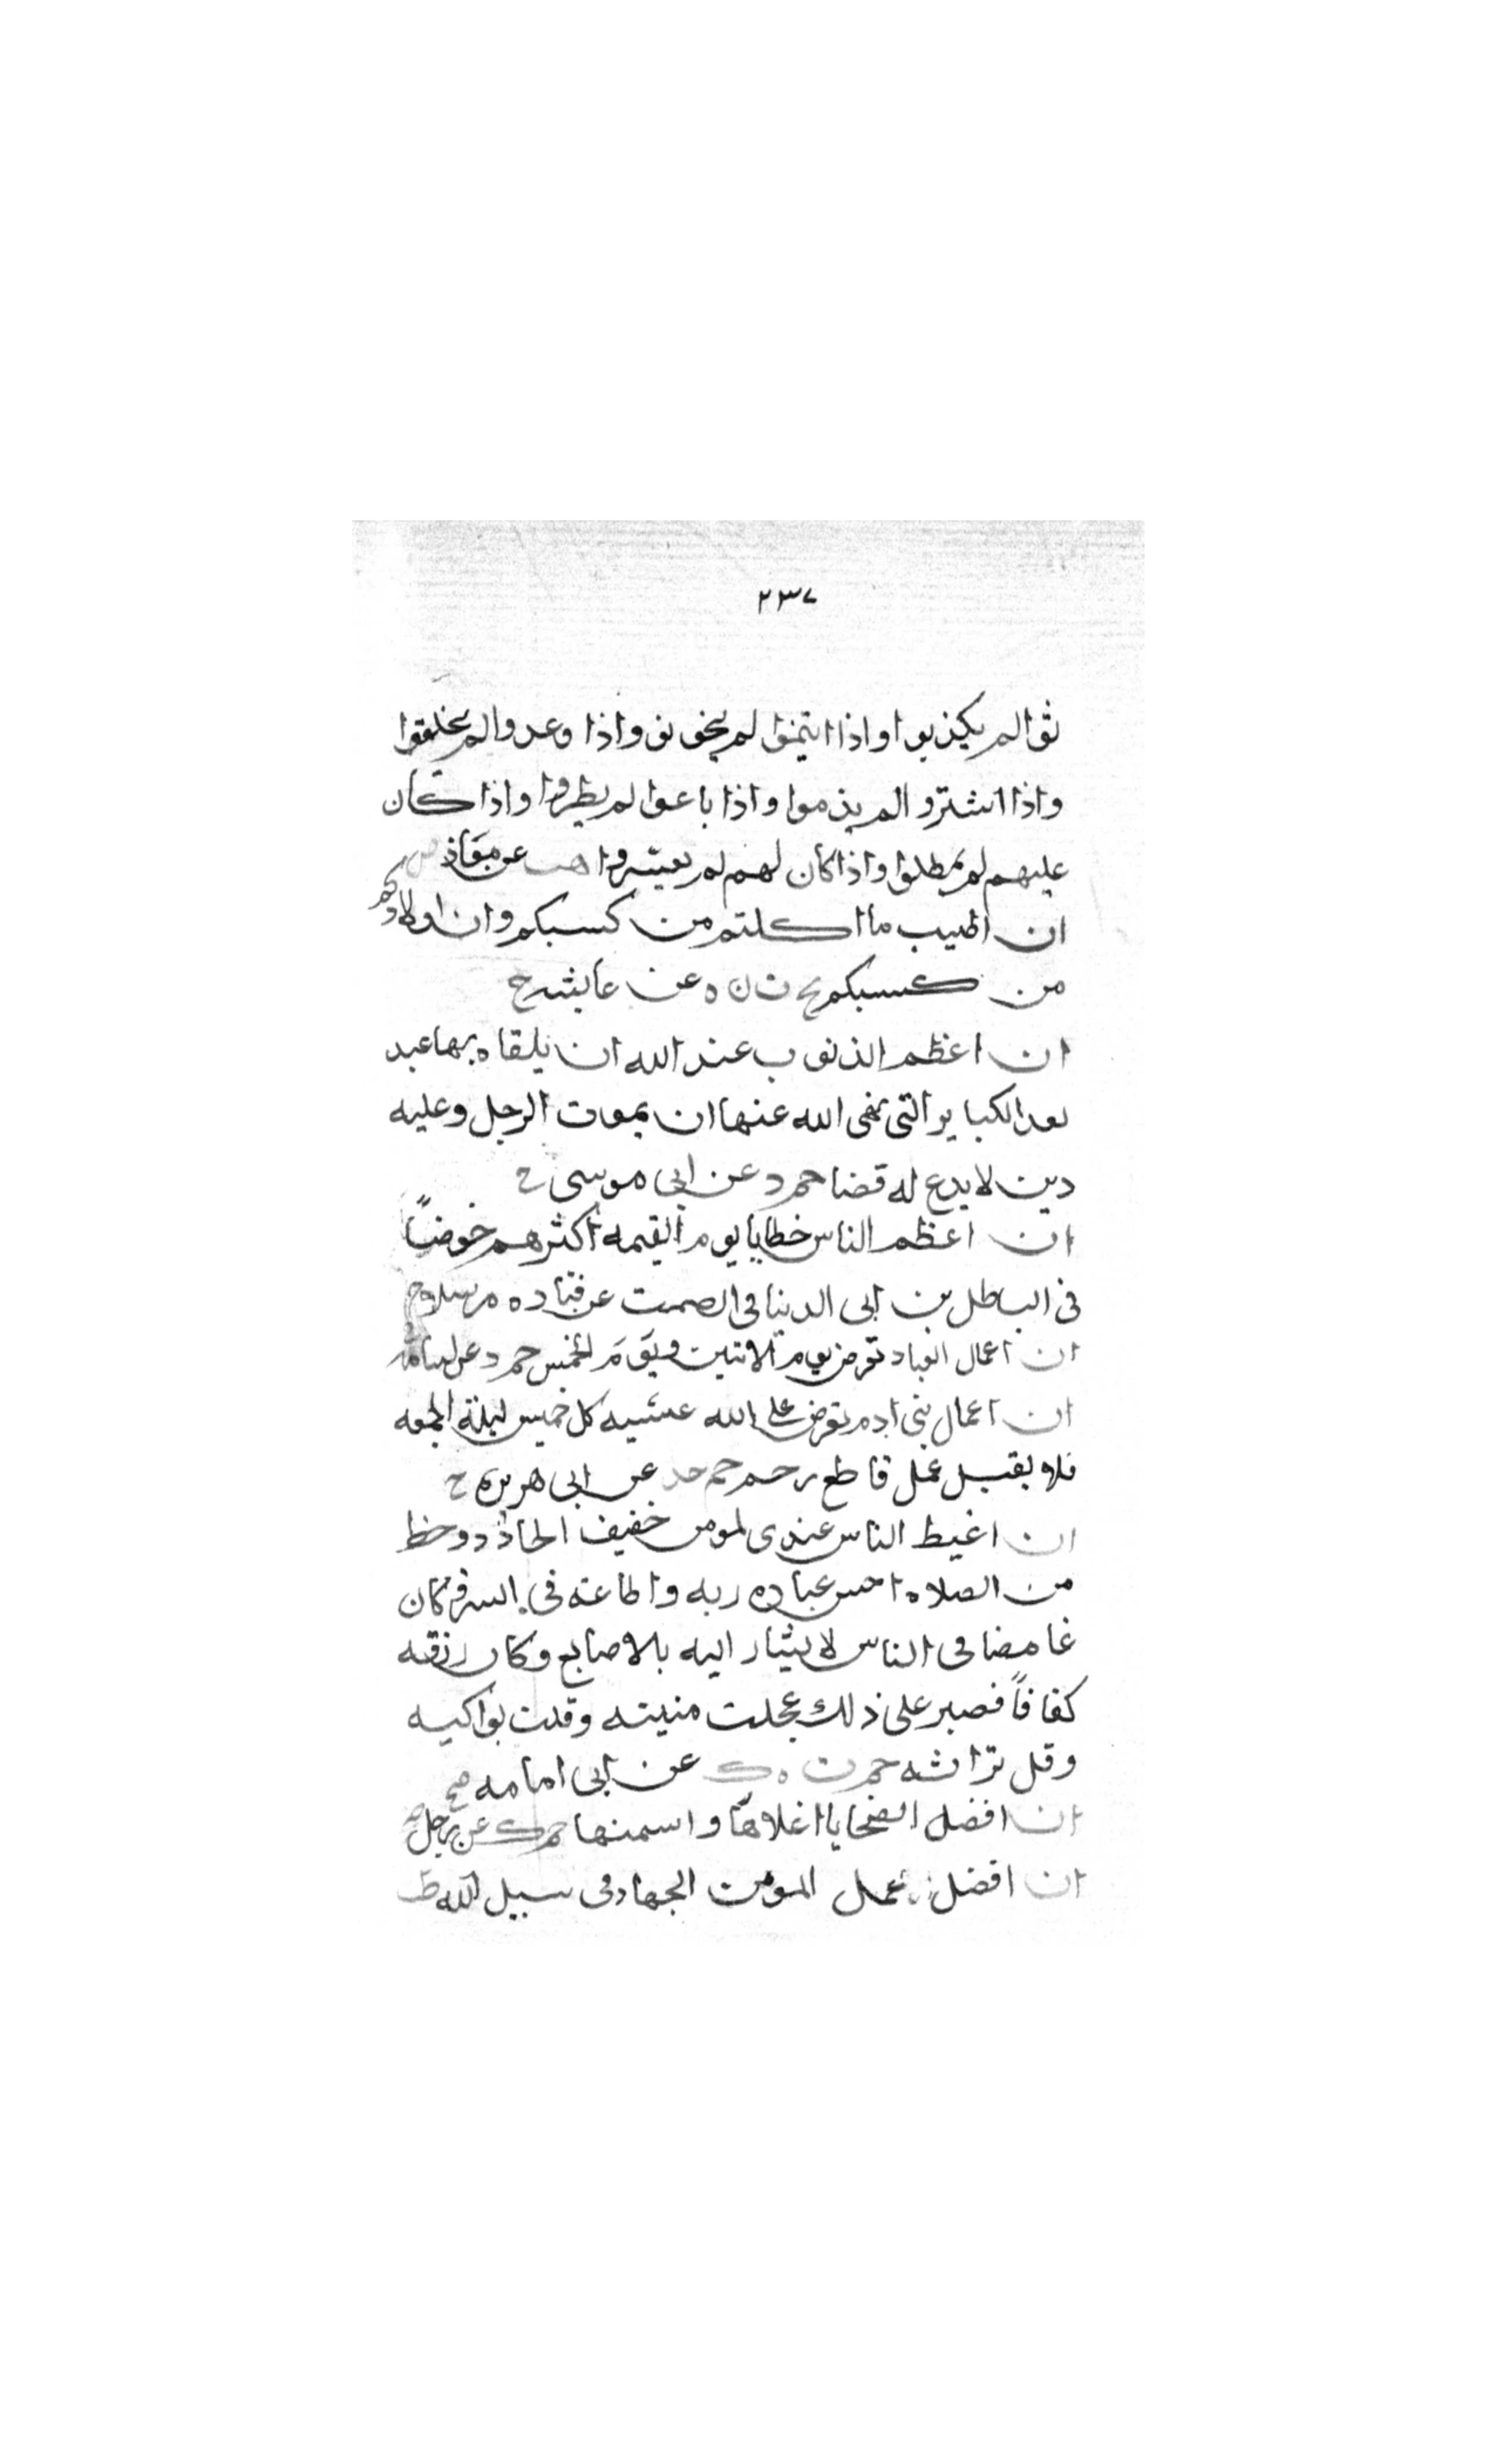 ٢٣٧
ثوا لم يكذبوا واذا ائتمنوا لم يخونو واذا وعدوا لم يخلفوا
واذا اشتروا لم يذموا واذا باعوا لم يطروا واذا كان
عليهم لم يمطلوا واذا كان لهم لم يعسروا هب عن معاذ
ان اطيب ما اكلتم من كسبكم وان اولادكم
من كسبكم تخ ت ن ه عن عايشه ح
ان اعظم الذنوب عند الله ان يلقاه بها عبد
بعد الكباير التي نهى الله عنها ان يموت الرجل وعليه
دين لا يدع له قضا حم د عن ابي موسى ح
ان اعظم الناس خطايا يوم القيمه اكثرهم خوضًا
في الباطل بن ابي الدنيا في الصمت عن قتاده مرسلا ح
ان اعمال العباد تعرض يوم الاثنين ويوم الخميس حم د عن اسامه
ان اعمال بني ادم تعرض على الله عشيه كل خميس ليلة الجمعه
فلا يقبل عمل قاطع رحم حم خد عن ابي هريره ح
ان اغبط الناس عندي لمومن خفيف الحاذ ذو حظ
من الصلاه احسن عباده ربه واطاعه في السر وكان
غامضا في الناس لا يشار اليه بالاصابع وكان رزقه
كفافاً فصبر على ذلك عجلت منيته وقلت بواكيه
وقل تراثه حم ت ه ك عن ابي امامه صح
ان افضل الضحايا اغلاها واسمنها حم ك عن رجل
ان افضل عمل المومن الجهاد في سبيل الله طب